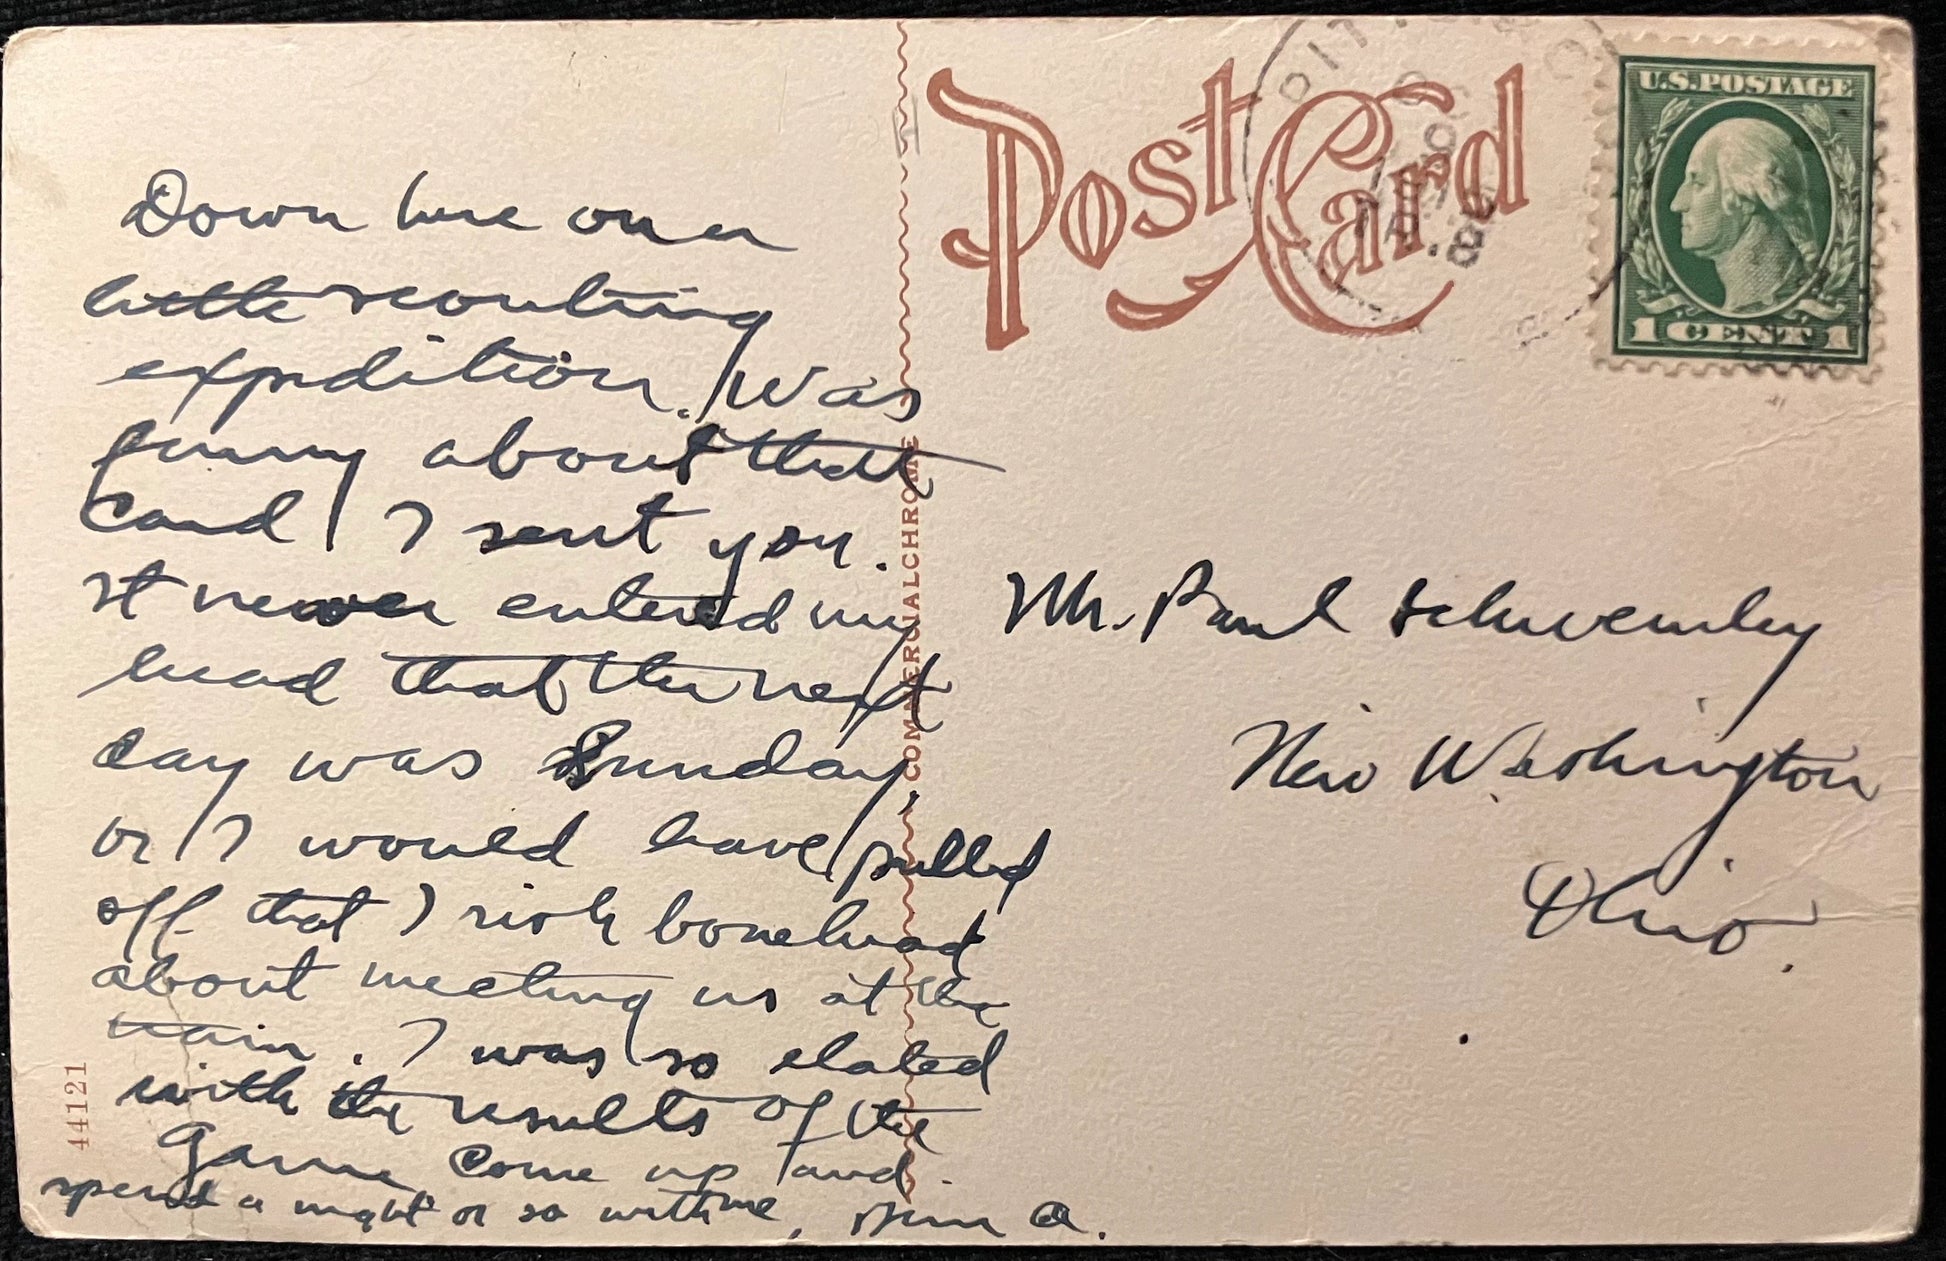 Down here on a
little scouting
expedition. Was
funny about that
card I sent you.
It never entered my
head that the next
day was Sunday,
or I would have pulled
off that I rish bonehead
about meeting us at the
train. I was so elated
with the results of the
Game Come up and
spend a night or so with me,
Post Card
U.S.POSTAGE
1 CENT 1
Mr. Paul
New Washington
Ohio.
COMMERCIALCHROME
44121